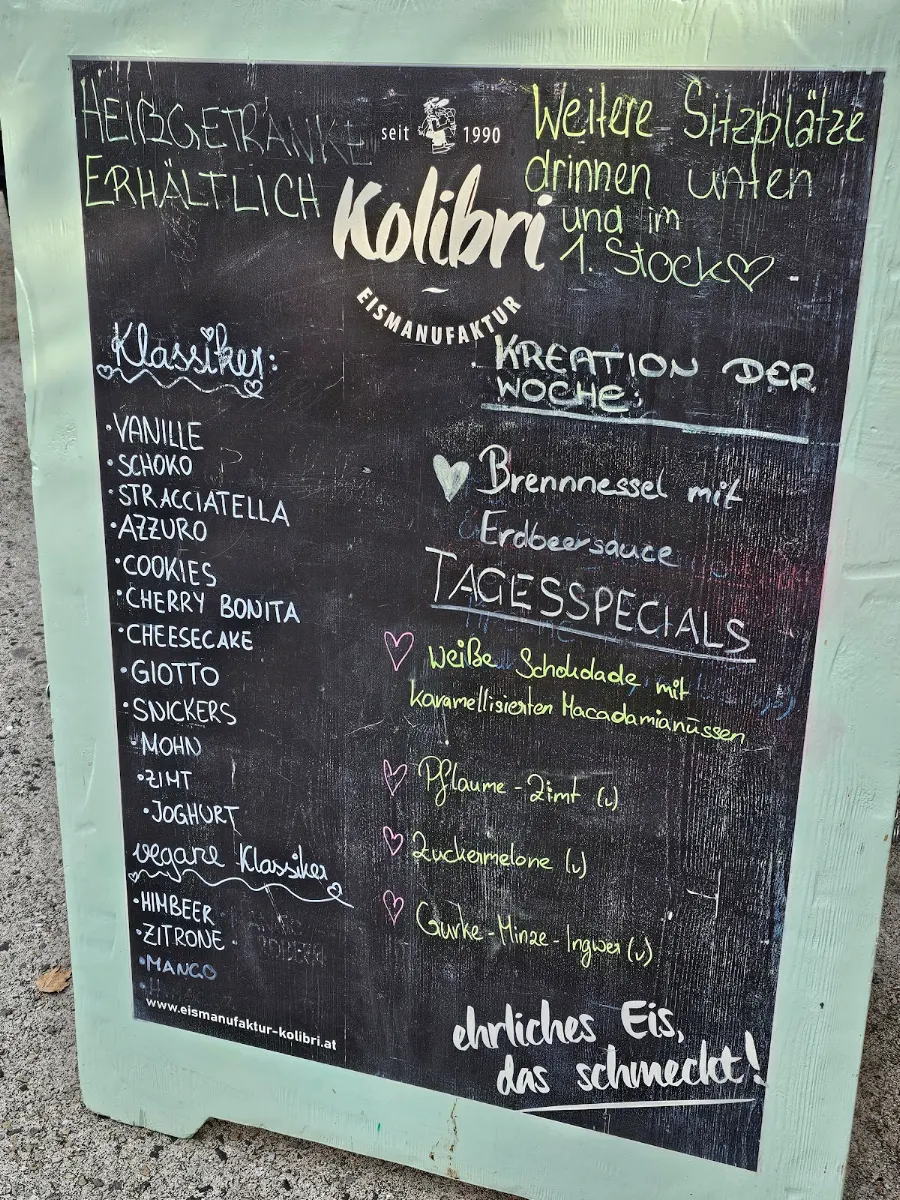 HEIßGETRÄNKE
ERHÄLTLICH
seit 1990
Kolibri
EISMANUFAKTUR
Weitere Sitzplätze
drinnen unten
und im
1. Stock
Klassiker:
·VANILLE
·SCHOKO
·STRACCIATELLA
·AZZURO
·COOKIES
·CHERRY BONITA
·CHEESECAKE
·GIOTTO
·SNICKERS
·MOHN
·ZIMT
·JOGHURT
vegane Klassiker
·HIMBEER
·ZITRONE
·MANGO
www.eismanufaktur-kolibri.at
KREATION DER
WOCHE:
Brennnessel mit
Erdbeersauce
TAGESSPECIALS
Weiße Schokolade mit
karamellisierten Macadamianüssen
Pflaume-Zimt (v)
Zuckermelone (v)
Gurke-Minze-Ingwer (v)
ehrliches Eis,
das schmeckt!